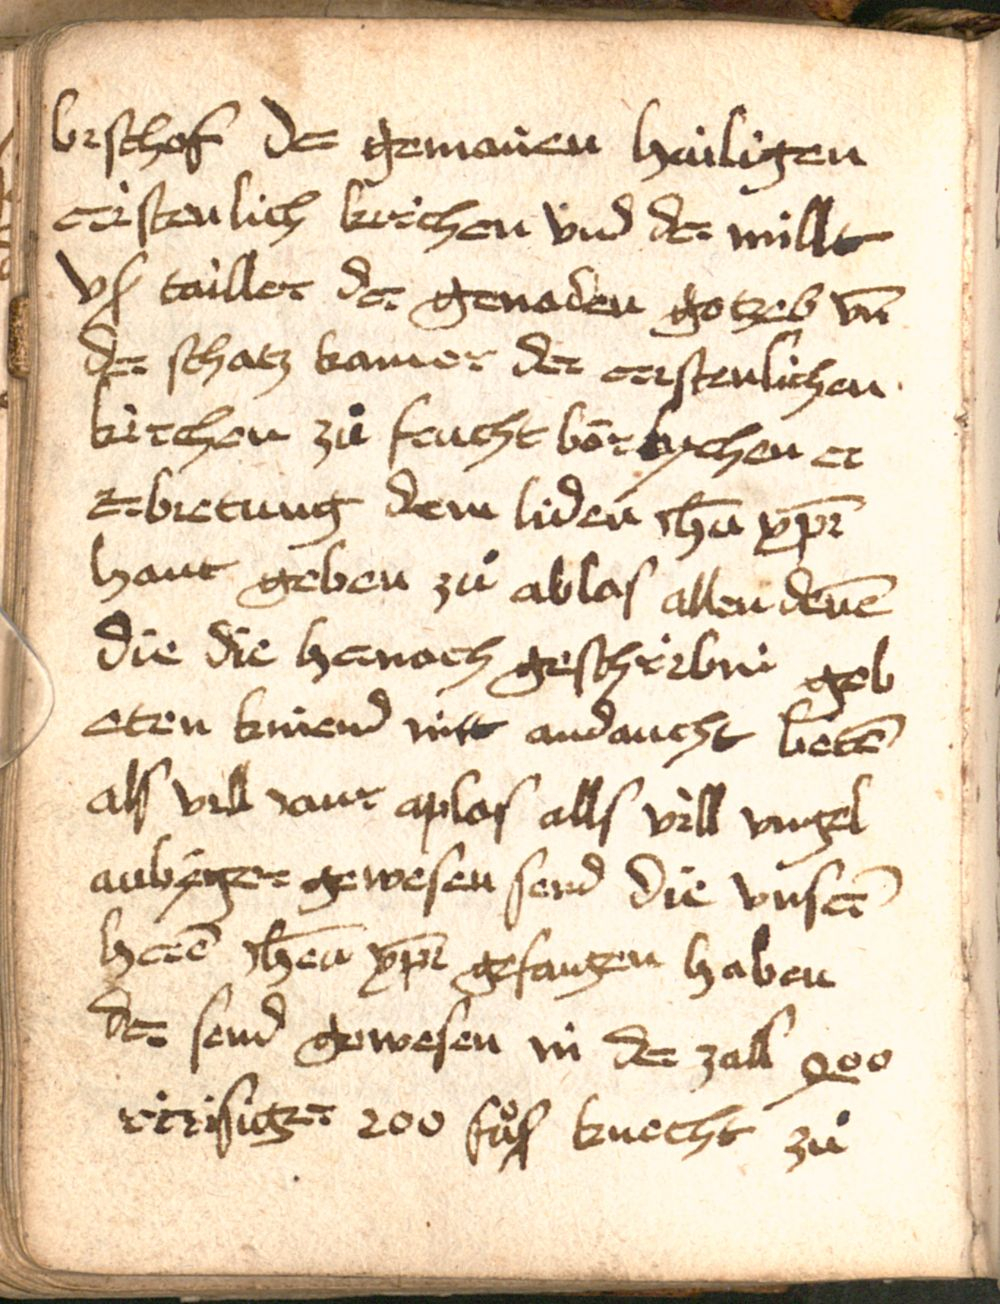 bischof der gemainen hailigen
cristenlich kirchen vnd der millt
vs tailler der genoden gotzes vn̄
der schatz kamer der cristenlichen
kirchen zuͦ frucht
erbietung dem liden ih̄u xp̄i
haut geben zuͦ ablas allen denē
die die hernoch geschribni geb
eten kniend mitt andaucht betē
als vill iaur aplos alls vill
gewesen send die vnserē
herē ih̄eu xp̄i gefangen haben
der send gewesen in der zall 200
risiger 200 fuͦs knecht zuͦ